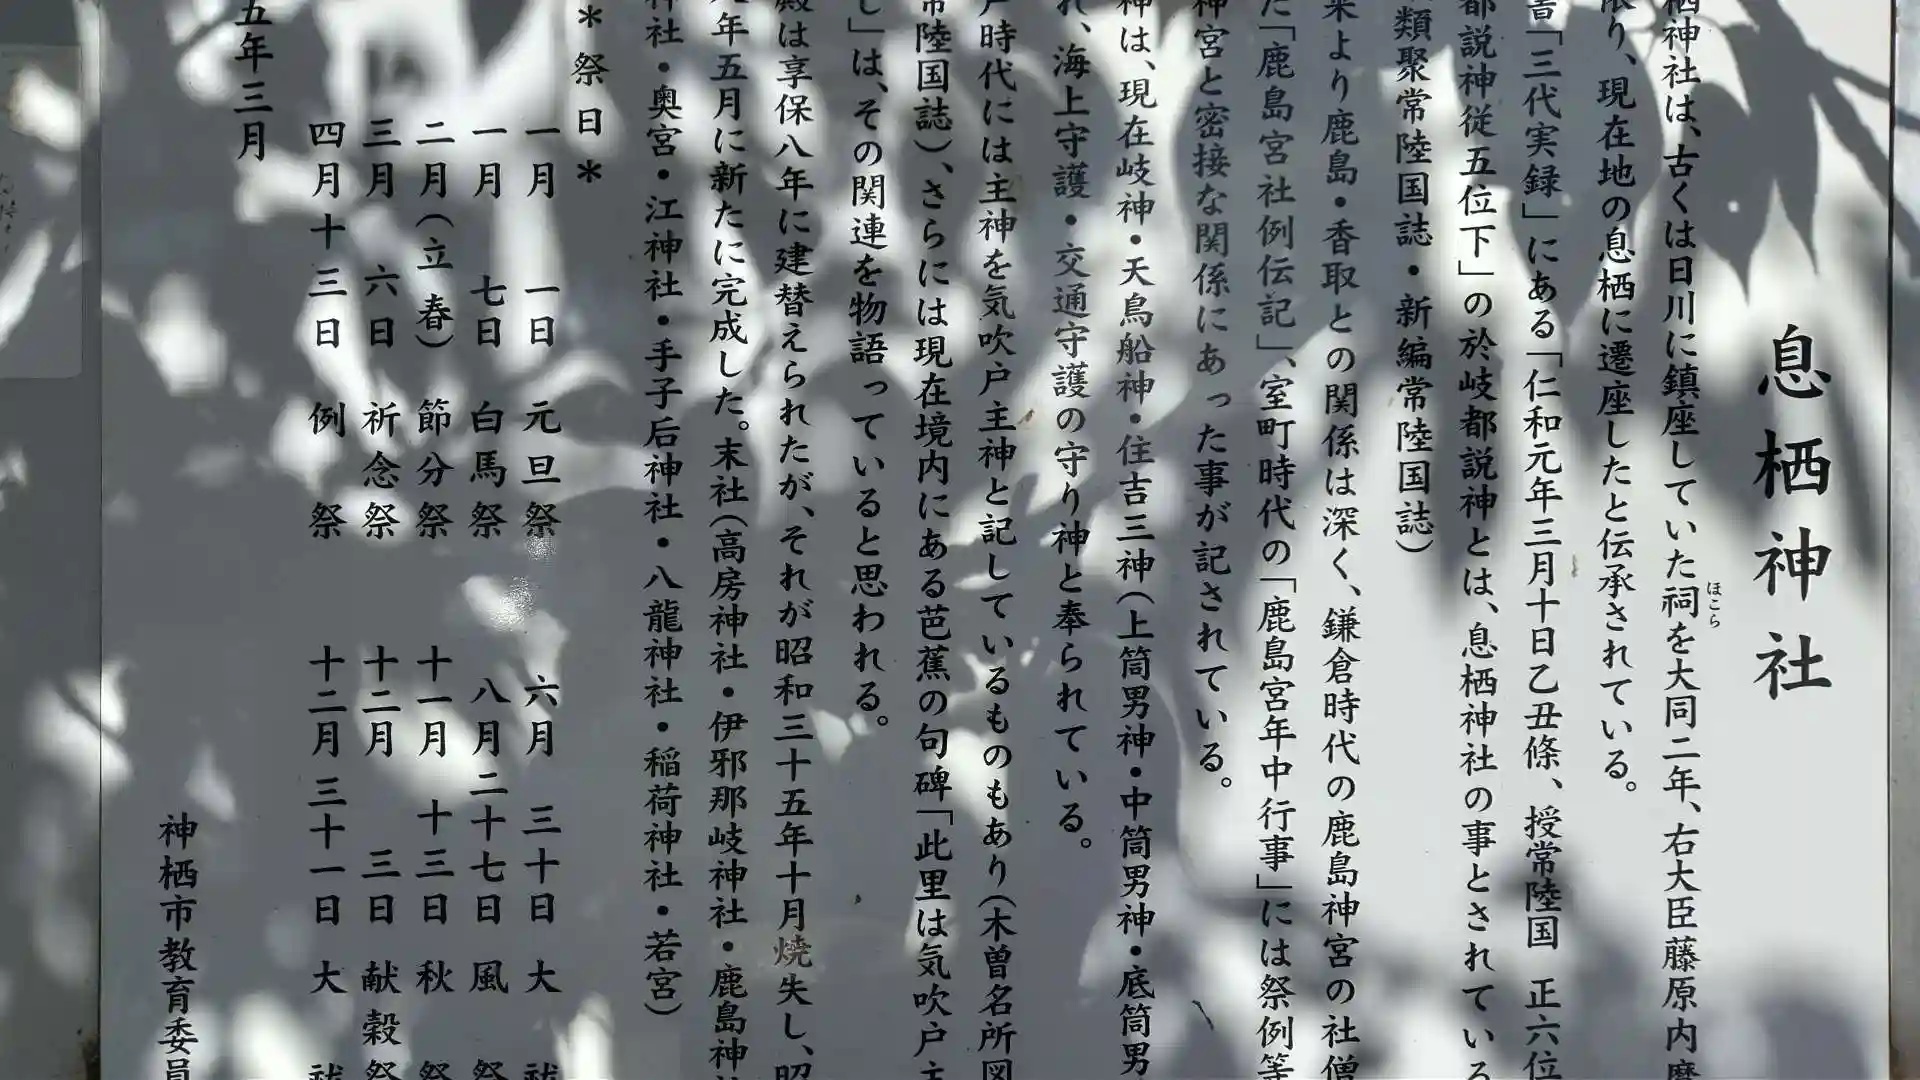 息栖神社
栖神社は、古くは日川に鎮座していた祠を大同二年、右大臣藤原内麿
ほこら
限り、現在地の息栖に遷座したと伝承されている。
書「三代実録」にある「仁和元年三月十日乙丑條、授常陸国 正六位
都説神従五位下」の於岐都説神とは、息栖神社の事とされている
類聚常陸国誌・新編常陸国誌）
来より鹿島・香取との関係は深く、鎌倉時代の鹿島神宮の社僧
た「鹿島宮社例伝記」、室町時代の「鹿島宮年中行事」には祭例等
神宮と密接な関係にあった事が記されている。
神は、現在岐神・天鳥船神・住吉三神（上筒男神・中筒男神・底筒男
れ、海上守護・交通守護の守り神と奉られている。
戸時代には主神を気吹戸主神と記しているものもあり（木曽名所図
常陸国誌）、さらには現在境内にある芭蕉の句碑「此里は気吹戸主
し」は、その関連を物語っていると思われる。
殿は享保八年に建替えられたが、それが昭和三十五年十月焼失し、昭
年五月に新たに完成した。末社（高房神社・伊邪那岐神社・鹿島神社
神社・奥宮・江神社・手子后神社・八龍神社・稲荷神社・若宮）
＊祭日＊
一月 一日 元旦祭 六月 三十日 大 祓
一月 七日 白馬祭 八月二十七日 風 祭
二月（立春） 節分祭 十一月 十三日 秋 祭
三月 六日 祈念祭 十二月 三日 献穀祭
四月十三日 例 祭 十二月三十一日 大 祓
五年三月
神栖市教育委員